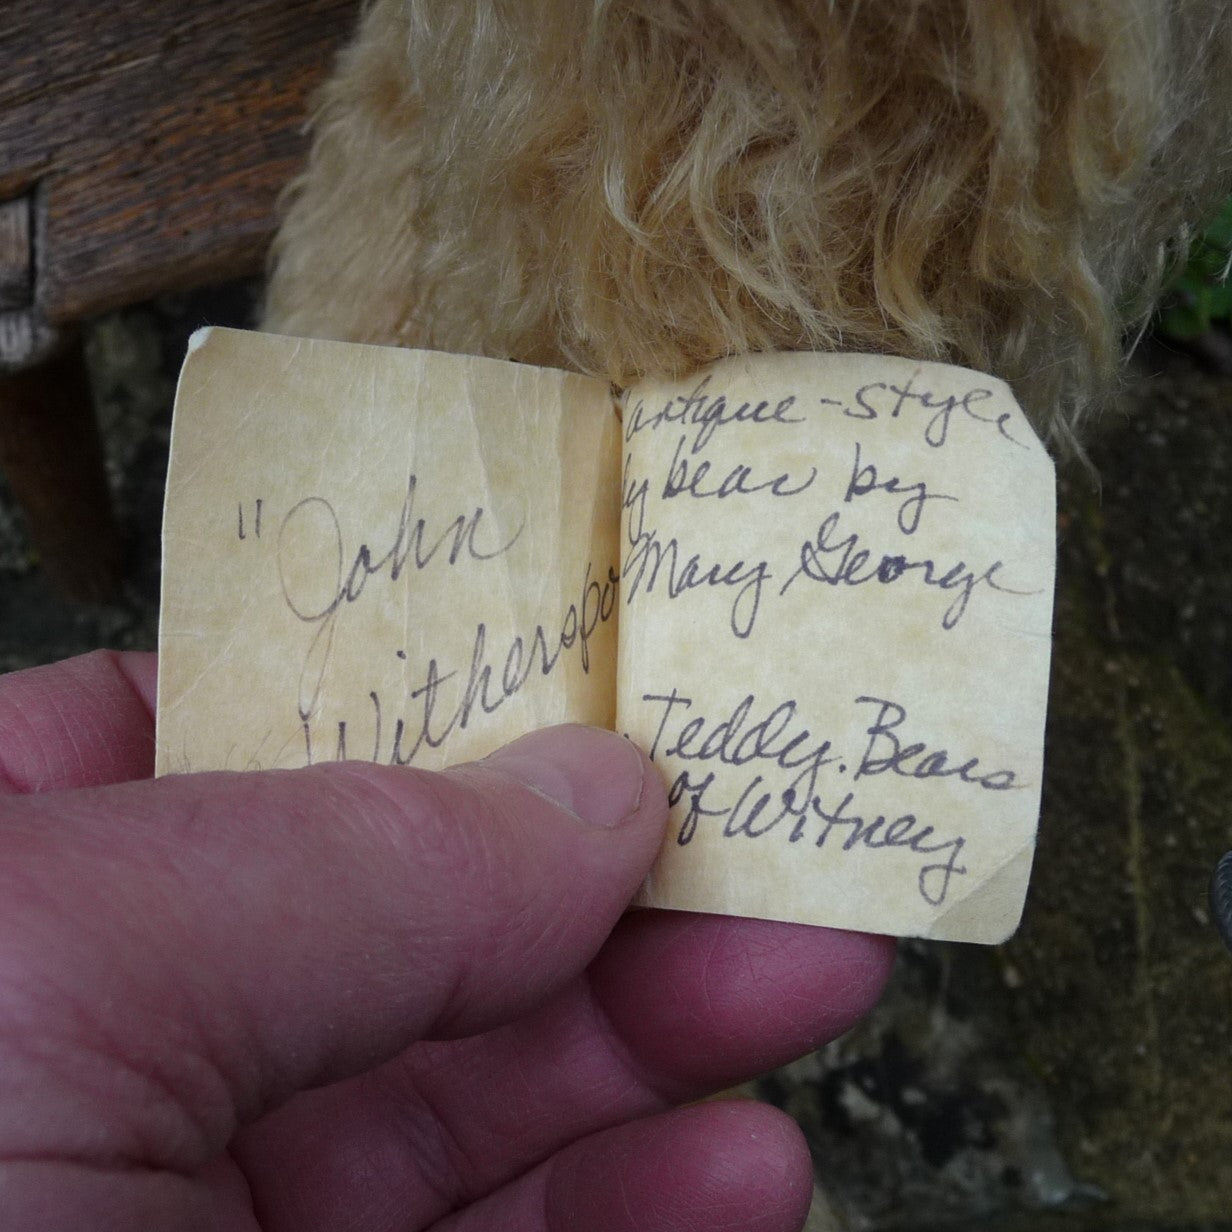 "John
Witherspo
antique-style
y bear by
Mary George
Teddy. Bears
of Witney